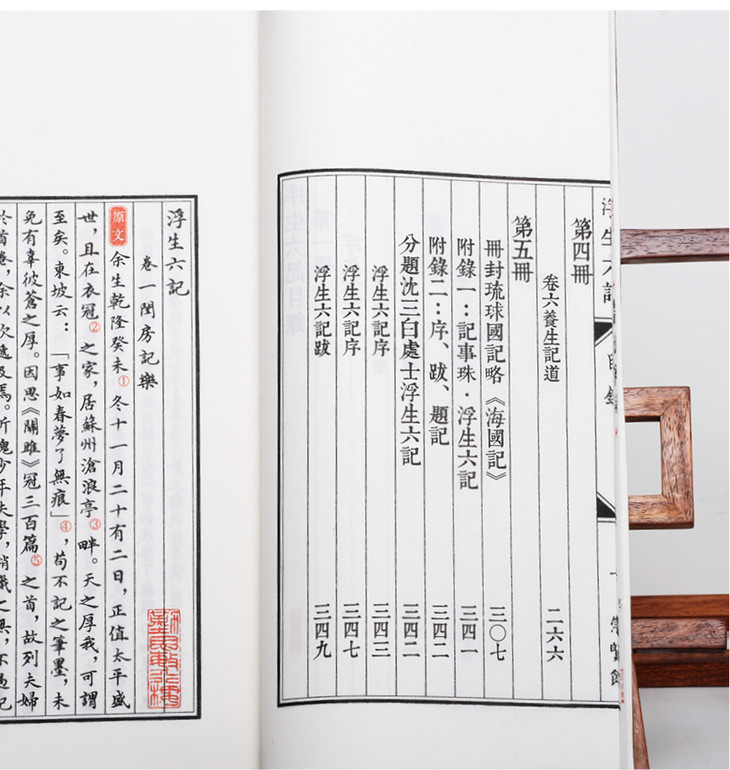 浮生六記
第四冊
卷六養生記道 二六六
第五冊
冊封琉球國記略《海國記》 三〇七
附錄一：記事珠·浮生六記 三四一
附錄二：序、跋、題記 三四二
分題沈三白處士浮生六記 三四二
浮生六記序 三四三
浮生六記序 三四七
浮生六記跋 三四九
浮生六記
卷一閨房記樂
原文 余生乾隆癸未①冬十一月二十有二日，正值太平盛
世，且在衣冠②之家，居蘇州滄浪亭③畔。天之厚我，可謂
至矣。東坡云：「事如春夢了無痕」④，苟不記之筆墨，未
免有辜彼蒼之厚。因思《關雎》冠三百篇⑤之首，故列夫婦
於首卷，余以次遞及焉。所愧少年失學，稍識之無，不過記